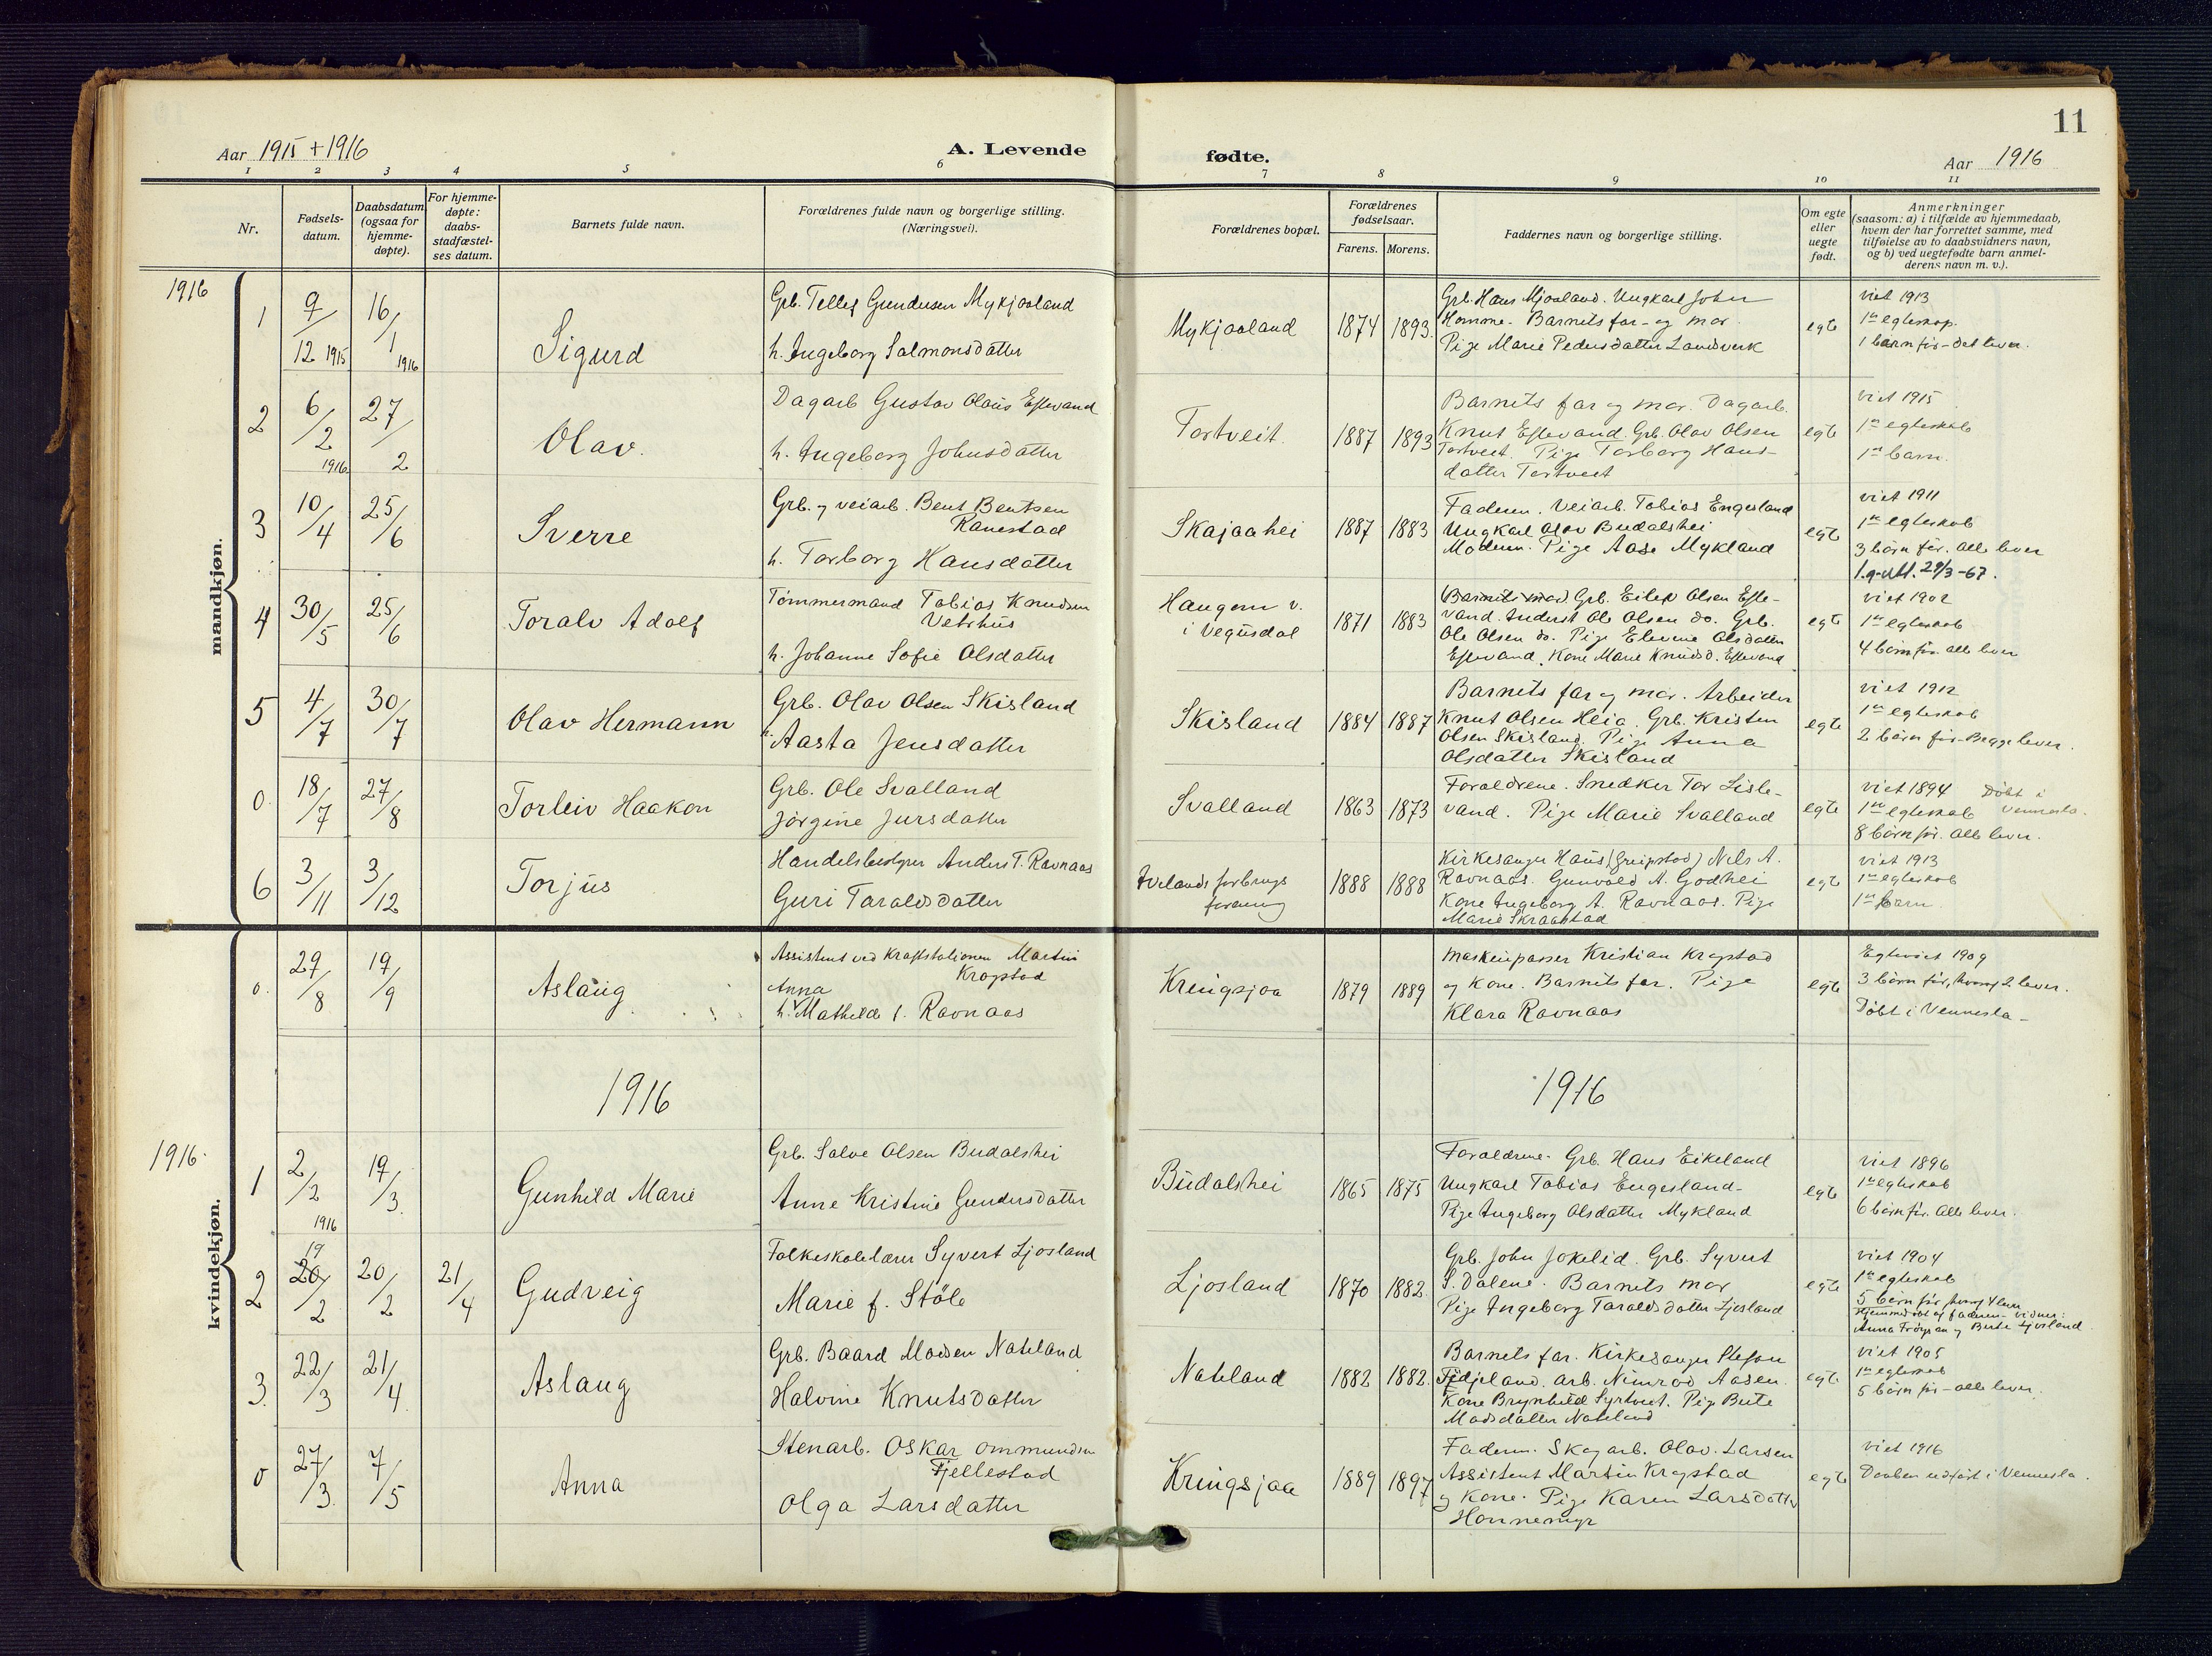 11
Aar 1915 + 1916
A. Levende
fødte.
Aar 1916
1 2 3 4 5 6 7 8 9 10 11
Nr.
Fødsels-
datum.
Daabsdatum
(ogsaa for
hjemme-
døpte).
For hjemme-
døpte:
daabs-
stadfæstel-
ses datum.
Barnets fulde navn.
Forældrenes fulde navn og borgerlige stilling.
(Næringsvei).
Forældrenes bopæl.
Forældrenes
fødselsaar.
Farens. Morens.
Faddernes navn og borgerlige stilling.
Om egte
eller
uegte
født.
Anmerkninger
(saasom: a) i tilfælde av hjemmedaab,
hvem der har forrettet samme, med
tilføielse av to daabsvidners navn,
og b) ved uegtefødte barn anmel-
derens navn m. v.).
mandkjøn.
1916
1
9/12 1915
16/1 1916
Sigurd
Grb. Tellef Gundersen Mykjaaland
h. Ingeborg Salmonsdatter
Mykjaaland
1874 1893.
Grb. Hans Mjaaland. Ungkarl John
Homme. Barnets far- og mor.
Pige Marie Pedersdatter Landsverk
egte
viet 1913
1ste egteskap.
1 barn før - det lever.
2
6/2 1916
27/2
Olav.
Dagarb Gustav Olaus Eftevand
h. Ingeborg Johnsdatter
Tortveit.
1887 1893
Barnets far og mor. Dagarb.
Knut Eftevand. Grb. Olav Olsen
Tortveit. Pige Torborg Hans-
datter Tortveit
egte
viet 1915
1ste egteskab
1ste barn.
3
10/4
25/6
Sverre
Grb. og veiarb. Bent Bentsen
Ranestad
h. Torborg Hansdatter
Skajaahei
1887 1883
Faderen. Veiarb. Tobias Engesland
Ungkarl Olav Budalshei
Moderen. Pige Aase Mykland
egte
viet 1911
1ste egteskab
3 börn för. alle lever
l.g.utt. 29/3-67.
4
30/5
25/6
Toralv Adolf
Tömmermand Tobias Knudsen
Vetrhus
h. Johanne Sofie Olsdatter
Haugom v.
i Vegusdal
1871 1883
Barnets mor. Grb. Eilef Olsen Efte-
vand. Anderst Ole Olsen do. Grb.
Ole Olsen do. Pige Elevine Olsdatter
Eftevand. Kone Marie Knudsd. Eftevand
egte
viet 1902
1ste egteskab
4 börn för. alle lever
5
4/7
30/7
Olav Hermann
Grb. Olav Olsen Skisland
h. Aasta Jensdatter
Skisland
1884 1887
Barnets far og mor. Arbeider
Knut Olsen Heia. Grb. Kristen
Olsen Skisland. Pige Anna
Olsdatter Skisland
egte
viet 1912
1ste egteskab
2 börn för - Begge lever.
0.
18/7
27/8
Torleiv Haakon
Grb. Ole Svalland
Jörgine Jursdatter
Svalland
1863 1873
Foraldrene. Snedker Tor Lisle-
vand. Pige Marie Svalland
egte
viet 1894 Döbt i
1ste egteskab Vennesla.
8 börn för. alle lever.
6
3/11
3/12
Torjus
Handelsbestyrer Anders T. Ravnaas
Guri Taraldsdatter
Ivelands forbrugs
forening
1888 1888
Kirkesanger Haus (Greipstad) Nels A.
Ravnaas. Gunvald A. Godhei
Kone Ingeborg A. Ravnaas. Pige
Marie Skraastad
egte
viet 1913
1ste egteskab
1ste barn.
kvindekjøn.
0.
29/8
19/9
Aslaug
Assistent ved Kraftstationen Martin
Kragstad
Anna
h. Mathilde f. Ravnaas
Kringsjaa
1879 1889
Maskinpasser Kristian Kragstad
og Kone. Barnets far. Pige
Klara Ravnaas
egte
Egteviet 1909
3 börn för, hvoraf 2 lever.
Döbt i Vennesla -
1916
1916
1916.
1
2/2 1916
19/3.
Gunhild Marie
Grb. Salve Olsen Budalshei
Anne Kristine Gundersdatter
Budalshei
1865 1875
Foraldrene. Grb. Hans Eikeland
Ungkarl Tobias Engesland-
Pige Ingeborg Olsdatter Mykland
egte
viet 1896
1ste egteskab
6 börn för. alle lever.
2
19
20/2
20/2
21/4
Gudveig
Folkeskolelærer Syvert Ljosland
Marie f. Stöle
Ljosland
1870 1882.
Grb. John Jokelid. Grb. Syvert
S. Dalene. Barnets mor
Pige Ingeborg Taraldsdatter Ljosland
egte
viet 1904
1ste egteskab
5 börn för, hvoraf 4 lever
Hjemmedöbt af faderen - vidner:
Anna Fröysaa og Berte Ljosland.
3.
22/3
21/4
Aslaug
Grb. Baard Madsen Nateland
Halvine Knutsdatter
Nateland
1882 1882.
Barnets far. Kirkesanger Stefan
Fidjeland. Arb. Nimrod Aasen.
Kone Brynhild Syrtveit. Pige Berte
Madsdatter Nateland
egte
viet 1905
1ste egteskab
5 börn för - alle lever.
0
27/3.
7/5
Anna
Stenarb. Oskar Ommundsen
Fjellestad
Olga Larsdatter
Kringsjaa
1889 1897
Faderen. Skogarb. Olav Larsen
Assistent Martin Kragstad
og Kone. Pige Karen Larsdatter
Honnemyr
egte
viet 1916
Daaben udfört i Vennesla.